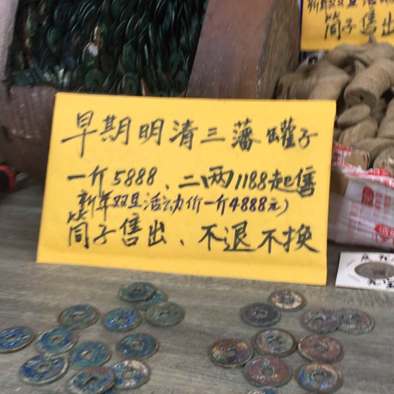 新年双旦活
筒子售出
早期明清三藩罐子
一斤5888、二两1188起售
(新年双旦活动价一斤4888元)
筒子售出、不退不换